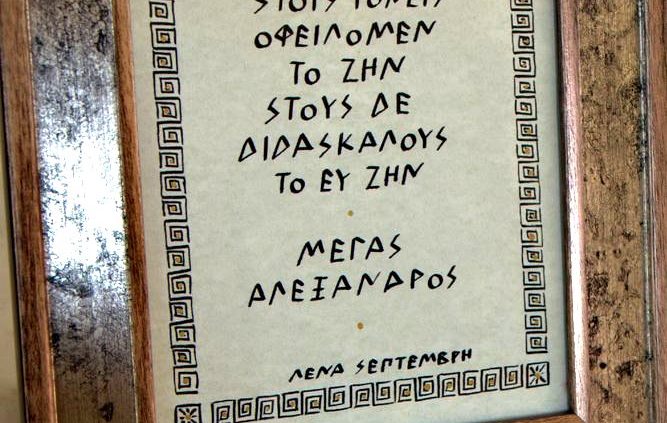 ΣΤΟΥΣ ΓΟΝΕΙΣ
ΟΦΕΙΛΟΜΕΝ
ΤΟ ΖΗΝ
ΣΤΟΥΣ ΔΕ
ΔΙΔΑΣΚΑΛΟΥΣ
ΤΟ ΕΥ ΖΗΝ
ΜΕΓΑΣ
ΑΛΕΞΑΝΔΡΟΣ
ΛΕΝΑ ΣΕΠΤΕΜΒΡΗ